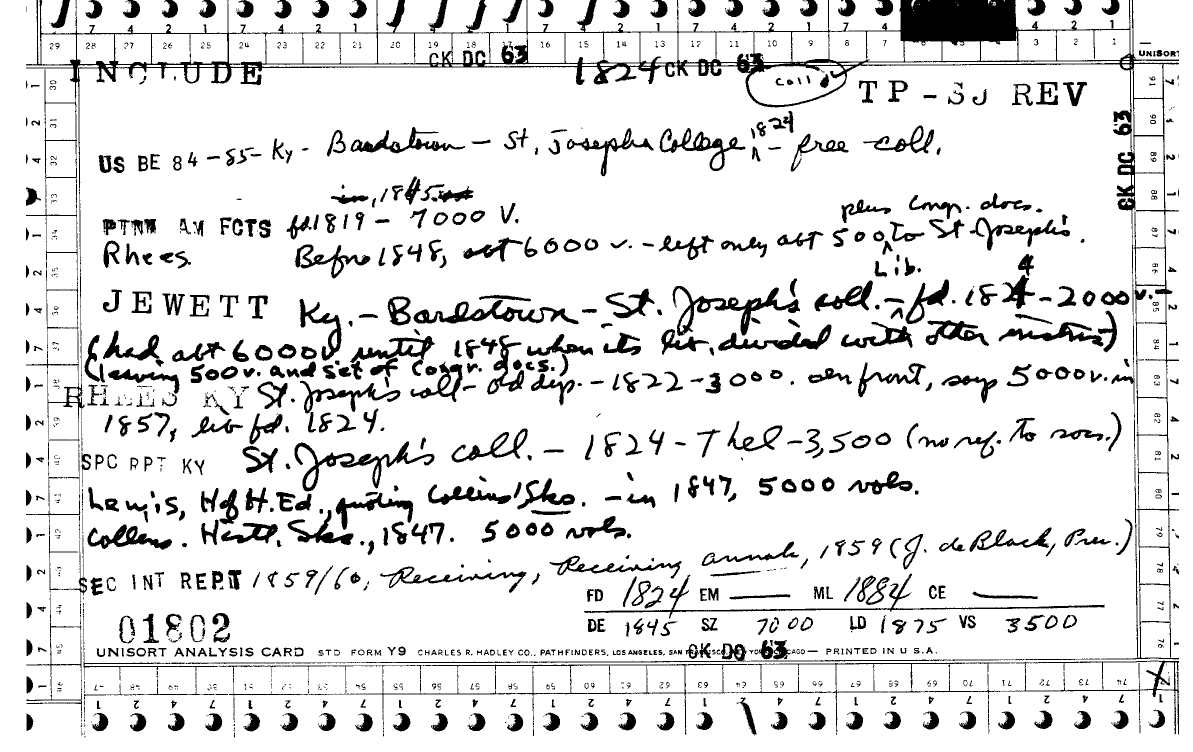 29 28 27 26 25 24 23 22 21 20 19 18 17 16 15 14 13 12 11 10 9 8 7 3 2 1
UNISORT
CK DC 63
INCLUDE 1824 CK DC 63 Coll TP - SJ REV
CK DC 63
US BE 84-85- Ky - Bardstown - St. Josephs College, 1824 - free - coll.
in, 1845.
PTNM AM FCTS fd. 1819 - 7000 V.
plus Congr. docs.
Rhees. Before 1848, abt 6000 v. - left only abt 500 to St Joseph's.
Lib. 4
JEWETT Ky. - Bardstown - St. Joseph's coll. - fd. 1824 - 2000 v.
(had abt 6000v until 1848 when its lib. divided with other instns)
(leaving 500v. and set of Congr. docs.)
RHEES KY St. Joseph's coll - old dep. - 1822 - 3000. on front, says 5000v. in
1857, lib fd. 1824.
SPC RPT KY St. Joseph's coll. - 1824 - Thel - 3,500 (no ref. to socs.)
Lewis, H of H. Ed., quoting Collins' Sks. - in 1847, 5000 vols.
Collins. Histl. Sks., 1847. 5000 vols.
SEC INT REPT 1859/60, Receiving, Receiving annals, 1859 (J. de Black, Pres.)
FD 1824 EM — ML 1884 CE —
DE 1845 SZ 7000 LD 1875 VS 3500
01802
UNISORT ANALYSIS CARD STD FORM Y9 CHARLES R. HADLEY CO., PATHFINDERS, LOS ANGELES, SAN FRANCISCO, NEW YORK, CHICAGO — PRINTED IN U.S.A.
CK DC 63